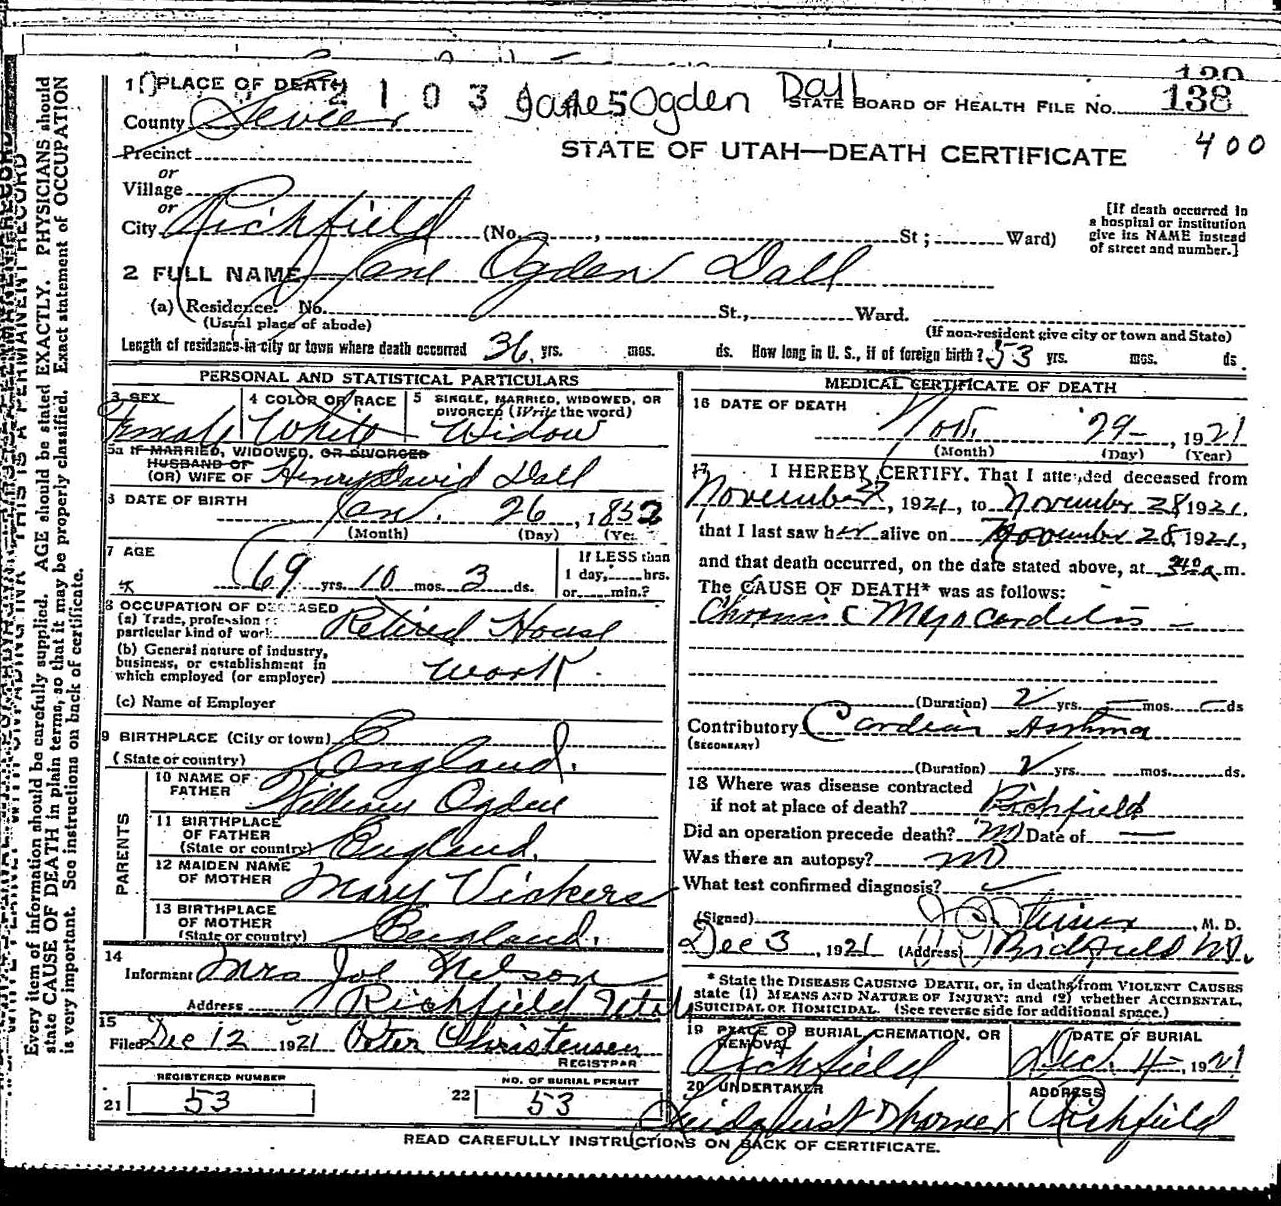 1 PLACE OF DEATH 2 1 0 3 Jane Ogden Dall STATE BOARD OF HEALTH FILE NO. 138
County Sevier
400
Precinct
STATE OF UTAH—DEATH CERTIFICATE
or
Village
or
City Richfield (No. , St; Ward)
[If death occurred in
a hospital or institution
give its NAME instead
of street and number.]
2 FULL NAME Jane Ogden Dall
(a) Residence. No. St., Ward.
(Usual place of abode) (If non-resident give city or town and State)
Length of residence in city or town where death occurred 36 yrs. mos. ds. How long in U. S., if of foreign birth? 53 yrs. mos. ds.
PERSONAL AND STATISTICAL PARTICULARS
3 SEX 4 COLOR OR RACE 5 SINGLE, MARRIED, WIDOWED, OR
DIVORCED (Write the word)
Female White Widow
5a IF MARRIED, WIDOWED, OR DIVORCED
HUSBAND OF
(OR) WIFE OF Henry David Dall
6 DATE OF BIRTH
Jan. 26, 1852
(Month) (Day)
7 AGE
69 yrs. 10 mos. 3 ds.
If LESS than
1 day, hrs.
or min.?
8 OCCUPATION OF DECEASED
(a) Trade, profession or
particular kind of work Retired House
(b) General nature of industry,
business, or establishment in
which employed (or employer) work
(c) Name of Employer
9 BIRTHPLACE (City or town)
(State or country) England.
PARENTS
10 NAME OF
FATHER William Ogden
11 BIRTHPLACE
OF FATHER
(State or country) England.
12 MAIDEN NAME
OF MOTHER Mary Vickers
13 BIRTHPLACE
OF MOTHER
(State or country) England.
14
Informant Mrs Joe Nelson
Address Richfield Utah
15
Filed Dec 12 1921 Peter Christensen
REGISTRAR
REGISTERED NUMBER NO. OF BURIAL PERMIT
21 53 22 53
MEDICAL CERTIFICATE OF DEATH
16 DATE OF DEATH
Nov. 29, 1921
(Month) (Day) (Year)
17 I HEREBY CERTIFY, That I attended deceased from
November 27, 1921, to November 28 1921.
that I last saw her alive on November 28 1921,
and that death occurred, on the date stated above, at m.
The CAUSE OF DEATH* was as follows:
Chronic Myocarditis
(Duration) 2 yrs. mos. ds
Contributory Cardiac Asthma
(SECONDARY)
(Duration) 2 yrs. mos. ds.
18 Where was disease contracted
if not at place of death? Richfield
Did an operation precede death? no Date of
Was there an autopsy? no
What test confirmed diagnosis?
(Signed) , M. D.
Dec 3, 1921 (Address) Richfield Ut.
* State the DISEASE CAUSING DEATH, or, in deaths from VIOLENT CAUSES
state (1) MEANS AND NATURE OF INJURY; and (2) whether ACCIDENTAL,
SUICIDAL OR HOMICIDAL. (See reverse side for additional space.)
19 PLACE OF BURIAL, CREMATION, OR
REMOVAL Richfield
DATE OF BURIAL
Dec. 4, 1921
20 UNDERTAKER
ADDRESS
Richfield
READ CAREFULLY INSTRUCTIONS ON BACK OF CERTIFICATE.
Every item of information should be carefully supplied. AGE should be stated EXACTLY. PHYSICIANS should
state CAUSE OF DEATH in plain terms, so that it may be properly classified. Exact statement of OCCUPATION
is very important. See instructions on back of certificate.